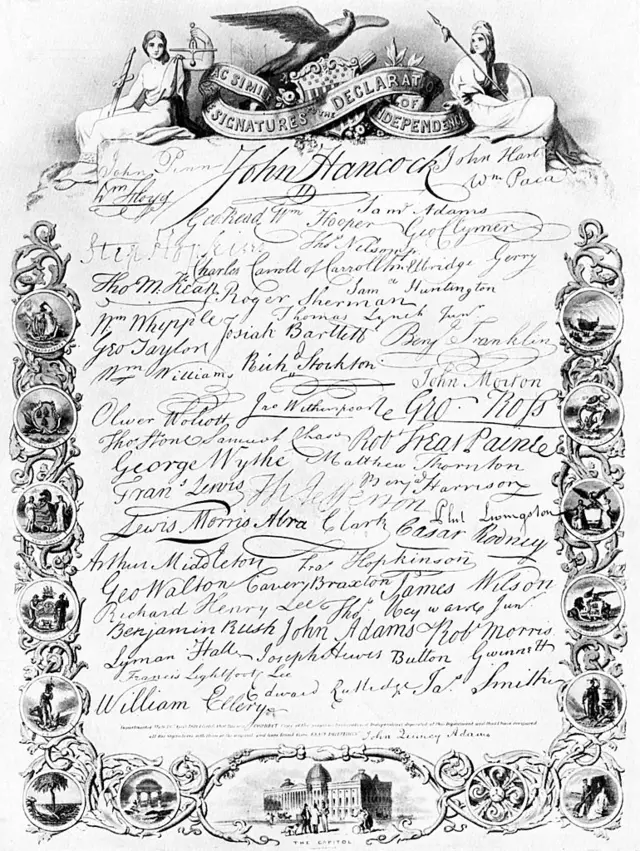 FAC SIMILE
SIGNATURES TO THE DECLARATION OF INDEPENDENCE
John Penn John Hancock John Hart
Wm Floyd Wm Paca
Geo Read Wm Hooper Saml Adams Geo Clymer
Step Hopkins Thos Nelson jr
Charles Carroll of Carrollton Elbridge Gerry
Tho M. Kean Roger Sherman Saml Huntington
Wm Whipple Josiah Bartlett Thomas Lynch Junr Benj Franklin
Geo Taylor
Wm Williams Richd Stockton John Morton
Oliver Wolcott Jno Witherspoon Geo. Ross
Thos Stone Samuel Chase Robt Treat Paine
George Wythe Matthew Thornton
Frans Lewis Th Jefferson Benja Harrison
Lewis Morris Abra Clark Phil Livingston Cæsar Rodney
Arthur Middleton Fras Hopkinson
Geo Walton Carter Braxton James Wilson
Richard Henry Lee Thos Heyward Junr
Benjamin Rush John Adams Robt Morris
Lyman Hall Joseph Hewes Button Gwinnett
Francis Lightfoot Lee
William Ellery Edward Rutledge Jas Smith
John Quincy Adams
THE CAPITOL